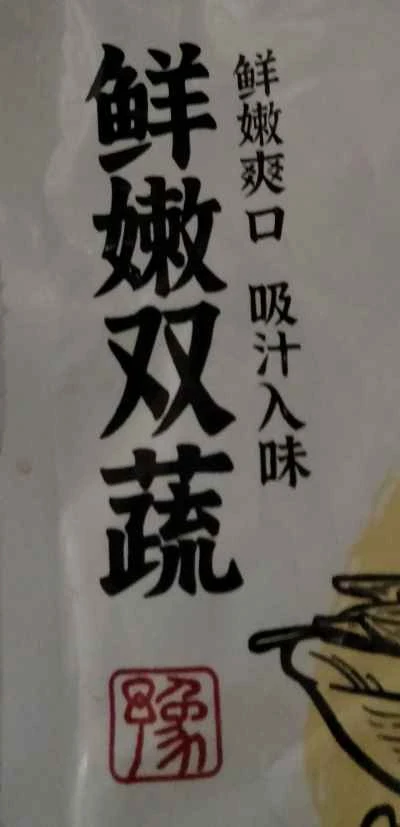 鲜嫩爽口 吸汁入味
鲜嫩双蔬
豫